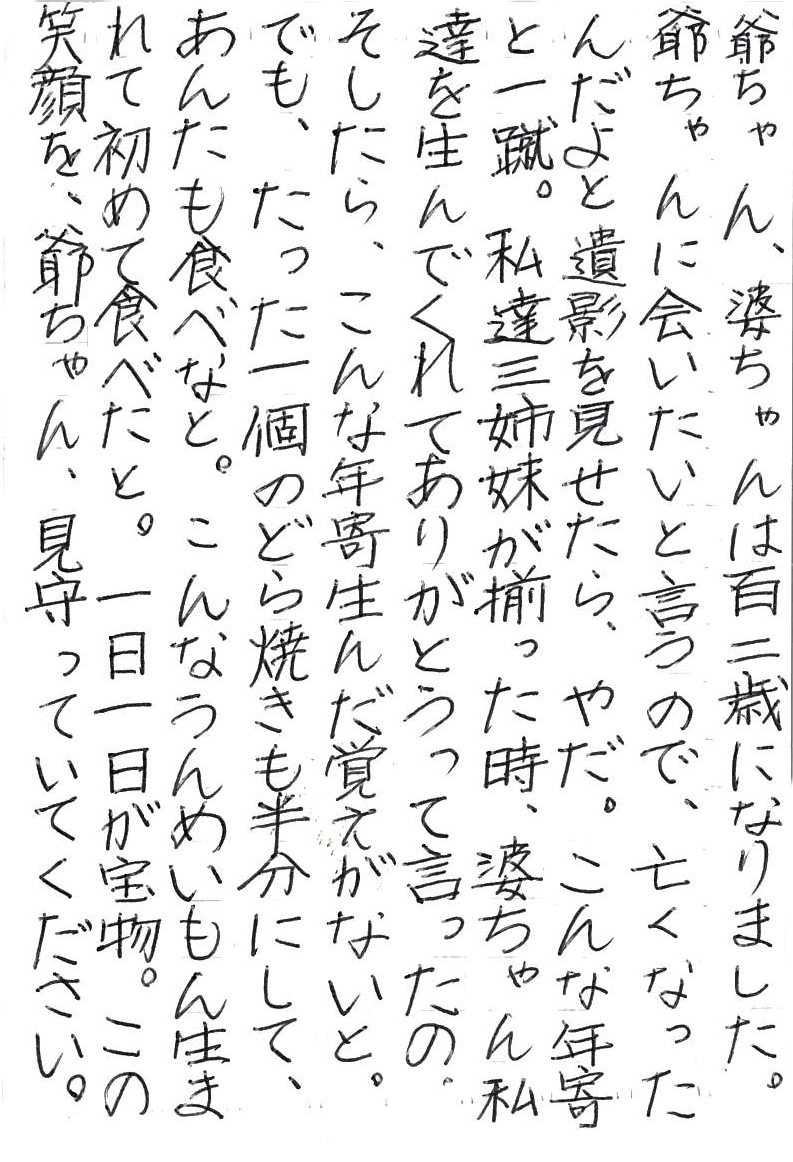 爺ちゃん、婆ちゃんは百二歳になりました。
爺ちゃんに会いたいと言うので、亡くなった
んだよと遺影を見せたら、やだ。こんな年寄
と一蹴。私達三姉妹が揃った時、婆ちゃん私
達を生んでくれてありがとうって言ったの。
そしたら、こんな年寄生んだ覚えがないと。
でも、たった一個のどら焼きも半分にして、
あんたも食べなと。こんなうんめいもん生ま
れて初めて食べたと。一日一日が宝物。この
笑顔を、爺ちゃん、見守っていてください。